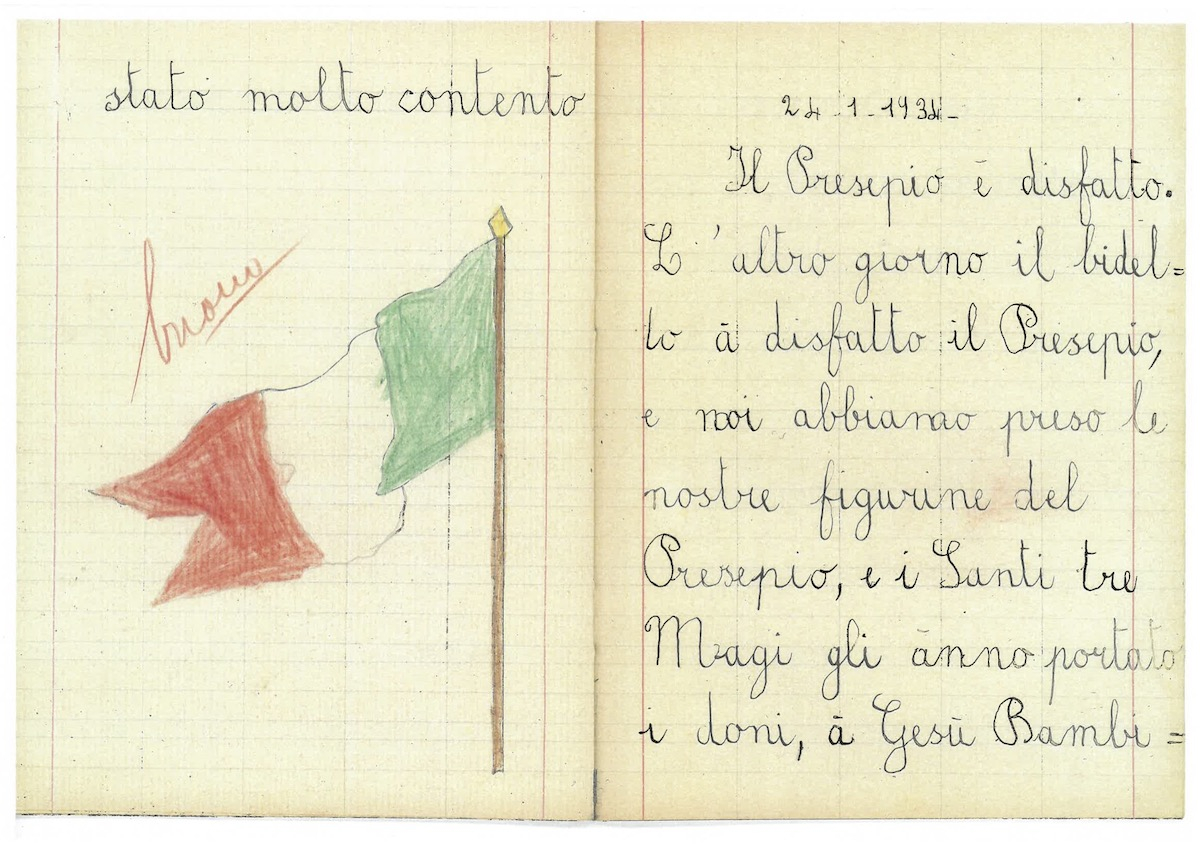 stato molto contento
buono
24-1-1934-
Il Presepio ē disfatto.
L'altro giorno il bidel=
lo ā disfatto il Presepio,
e noi abbiamo preso le
nostre figurine del
Presepio, e i Santi tre
Magi gli ānno portato
i doni, ā Gesū Bambi=